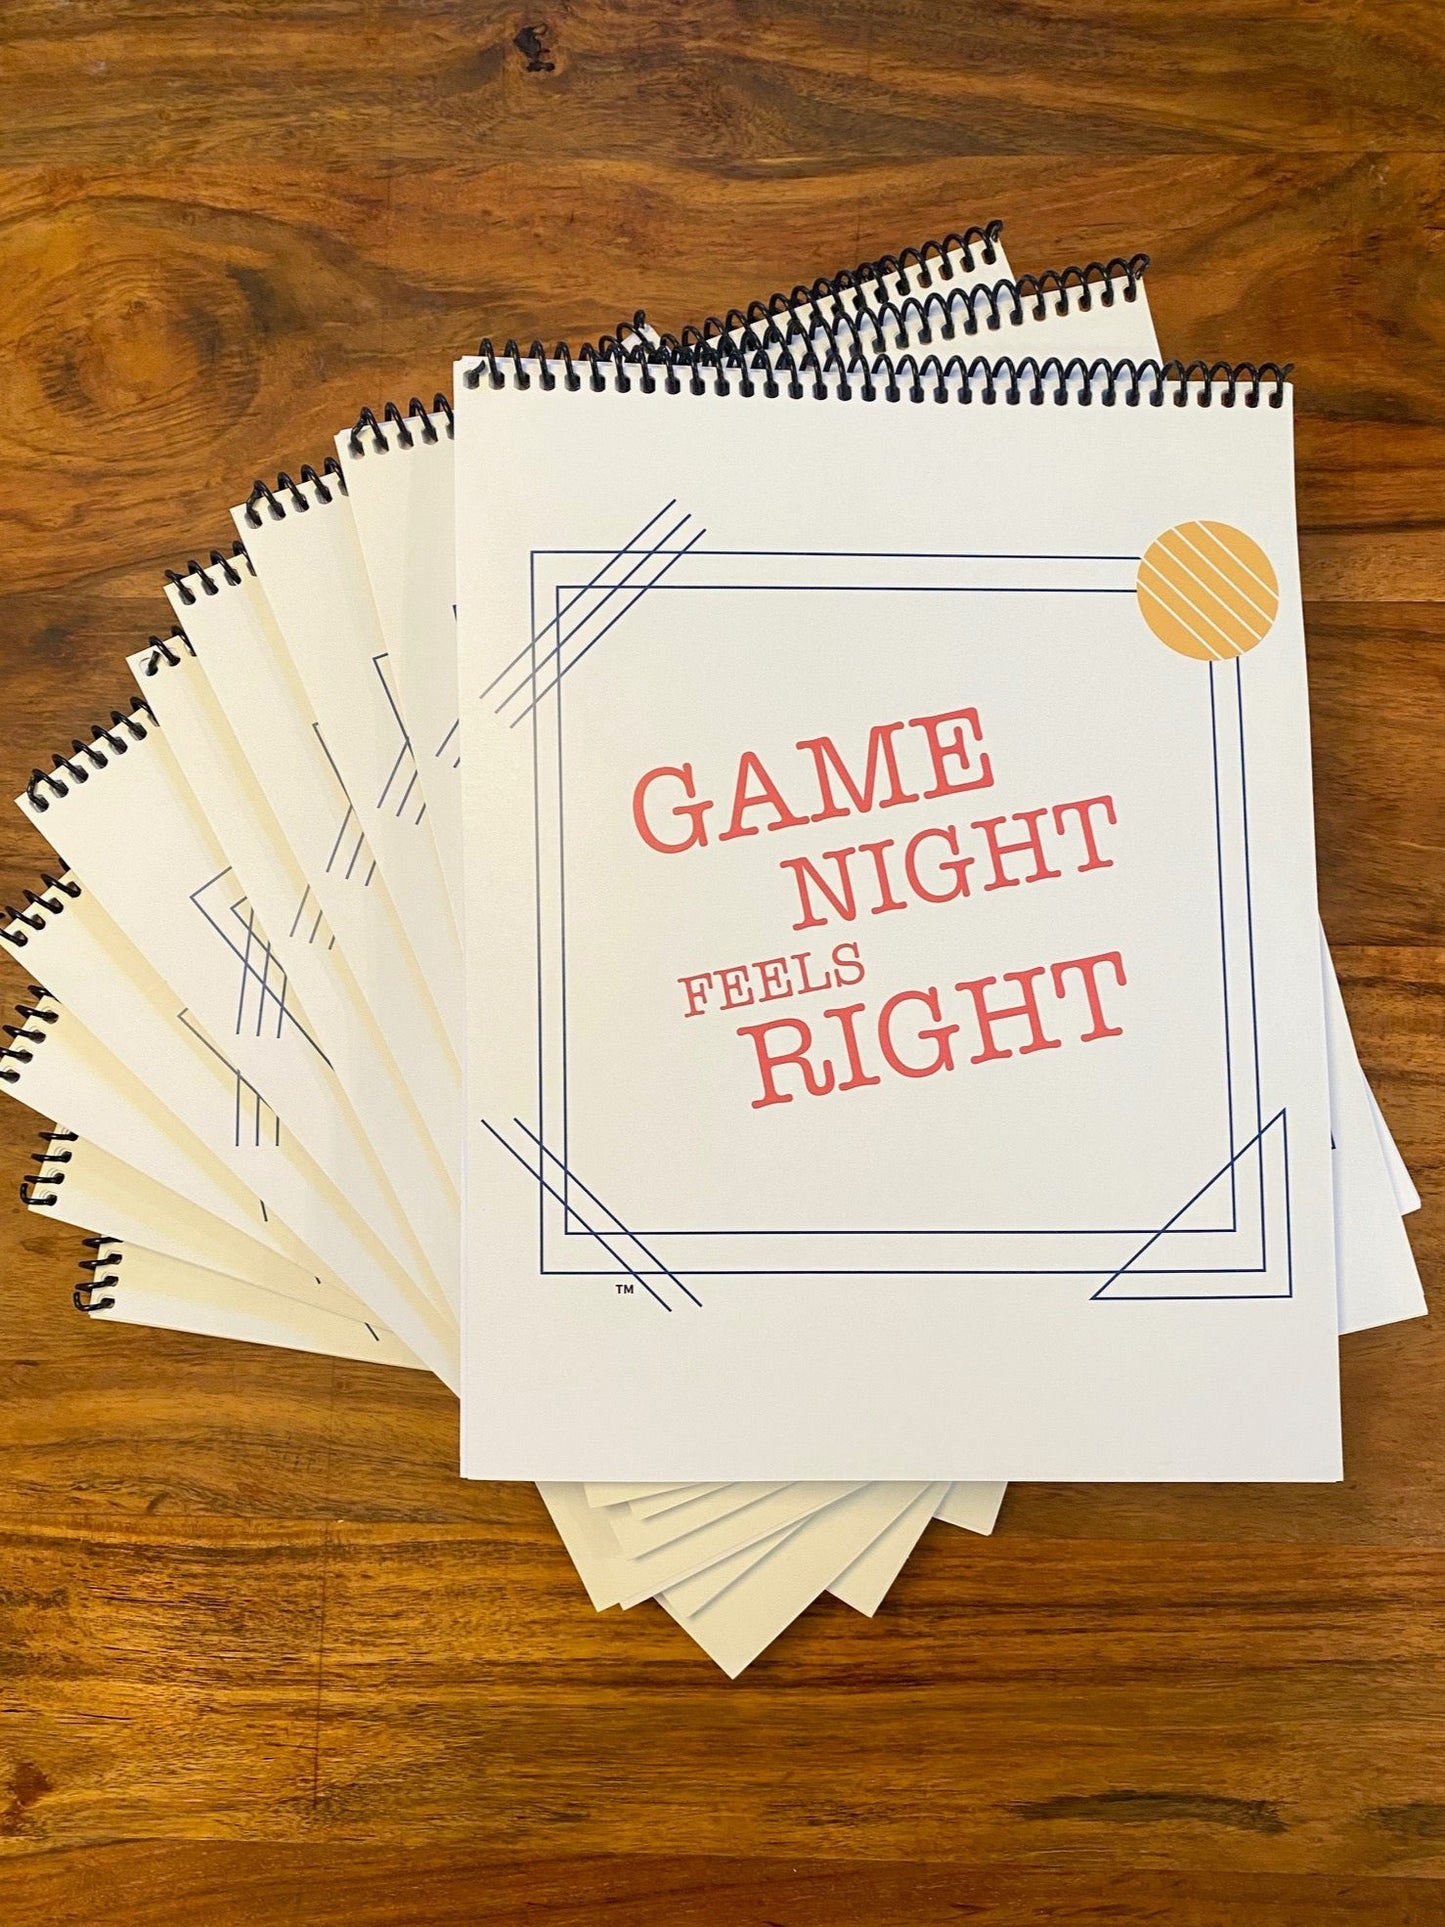 GAME
NIGHT
FEELS
RIGHT
TM